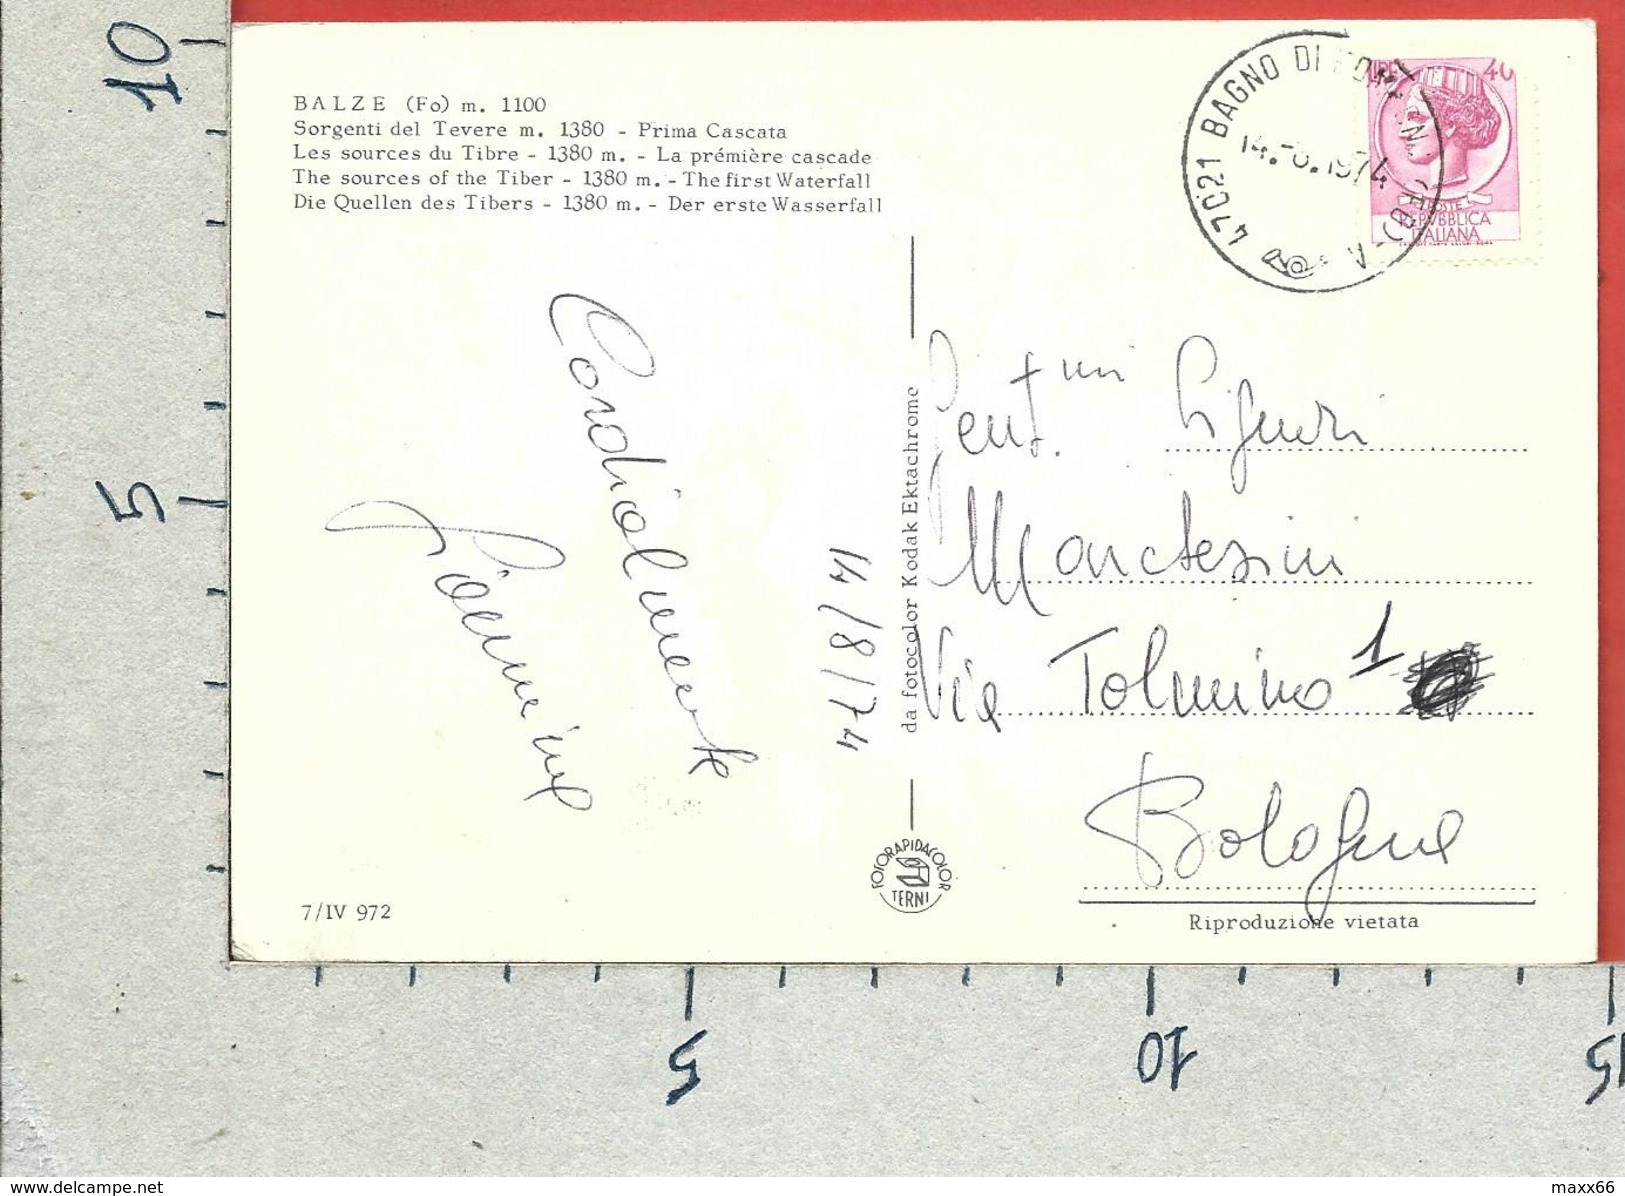 BALZE (Fo) m. 1100
Sorgenti del Tevere m. 1380 - Prima Cascata
Les sources du Tibre - 1380 m. - La prémière cascade
The sources of the Tiber - 1380 m. - The first Waterfall
Die Quellen des Tibers - 1380 m. - Der erste Wasserfall
47021 BAGNO DI
14. 8. 1974
LIRE 40
POSTE
REPVBBLICA
ITALIANA
Cordialmente
14/8/74
da fotocolor Kodak Ektachrome
Gent.mi Signori
Marchesini
Via Tolmino 1
Bologna
FOTORAPIDACOLOR
TERNI
7/IV 972
Riproduzione vietata
10
5
5
10
15
www.delcampe.net
maxx66